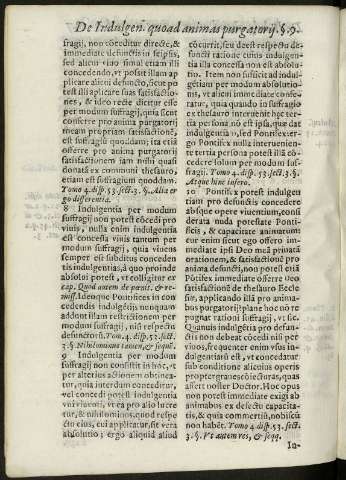 De Indulgen. quoad animas purgatorij. §. 9.
fragij, non cōceditur directe, &
immediate defunctis in seipsis,
sed alicui viuo simul etiam illi
concedendo, vt possit illam ap
plicare alicui defuncto, sicut po
test illi applicare suas satisfactio
nes, & ideo recte dicitur esse
per modum suffragij, quia sicut
offerre pro anima purgatorij
meam propriam satisfactionē,
est suffragiū quoddam; ita etiā
offerre pro anima purgatorij
satisfactionem iam mihi quasi
donatā ex communi thesauro,
etiam est suffragium quoddam.
Tomo 4. disp. 53. sect. 3. §. Alia er
go differentia.
8 Indulgentia per modum
suffragij non potest cōcedi pro
viuis, nulla enim indulgentia
est concessa viuis tantum per
modum suffragij, quia viuens
semper est subditus conceden
tis indulgentias, ad quē pro inde
absolui potest, vt colligitur ex
cap. Quod autem de pœnit. & re-
miss. Ideoque Pontifices in con
cedendis indulgētijs nunquam
addunt illam restrictionem per
modum suffragij, nisi respectu
defunctorū. Tom. 4. disp. 53. sect.
3. §. Nihilominus tamen, & sequē.
9 Indulgentia per modum
suffragij non consistit in hoc, vt
per alterius actionem obtinea-
tur, quia interdum conceditur,
vel concedi potest indulgentia
viui viuenti, vt ea pro alio lucre
tur, & nihilominus, quod respe
ctu eius, cui applicatur, sit vera
absolutio; ergo aliquid aliud
cōcurrit, seu deest respectu de-
functi ratione cuius indulgen-
tia illi concessa non est absolu-
tio. Item non sufficit ad indul-
gētiam per modum absolutio-
nis, vt alieni immediate confe-
ratur, quia interdum fragilio
ex thesauro interuenit hęc ter-
tia persona, & est ipse, qui dat
indulgentiā, sed Pontifex er-
go indulgentia nulla interuenien-
te tertia persona potest illā cō-
cedere solum per modum suf-
fragij. Tomo 4. disp. 53. sect. 3. §.
Atque hinc infero.
10 Pontifex potest indulgen
tiam pro defunctis concedere
absque opere viuentium, consi
derata nuda potestate Ponti-
ficis, & capacitate animarum
cur enim sicut ego offero imme-
diate ipsi Deo meā priuatā
orationem, & satisfactionē pro
anima defuncti, non potest etiā
Pōtifex immediate offerre Deo
satisfactionē de thesauro Eccle
siæ, applicando illā pro anima-
bus purgatorij plane hoc nō re
pugnat rationi suffragij, vt sic.
Quamuis indulgētia pro defun-
ctis non debeat cōcedi nisi per
viuos, frequenter enim vsus in-
dulgentiarū est, vt concedātur
sub conditione alicuius operis
propter congruas coniecturas, quas
affert noster Doctor. Hoc opus
non potest immediate exigi ab
animabus ex defectu capacita-
tis, & quia commerciū, nobiscū
non habēt. Tomo 4. disp. 53. sect.
3. §. Vt autem res, & seqq.
In-